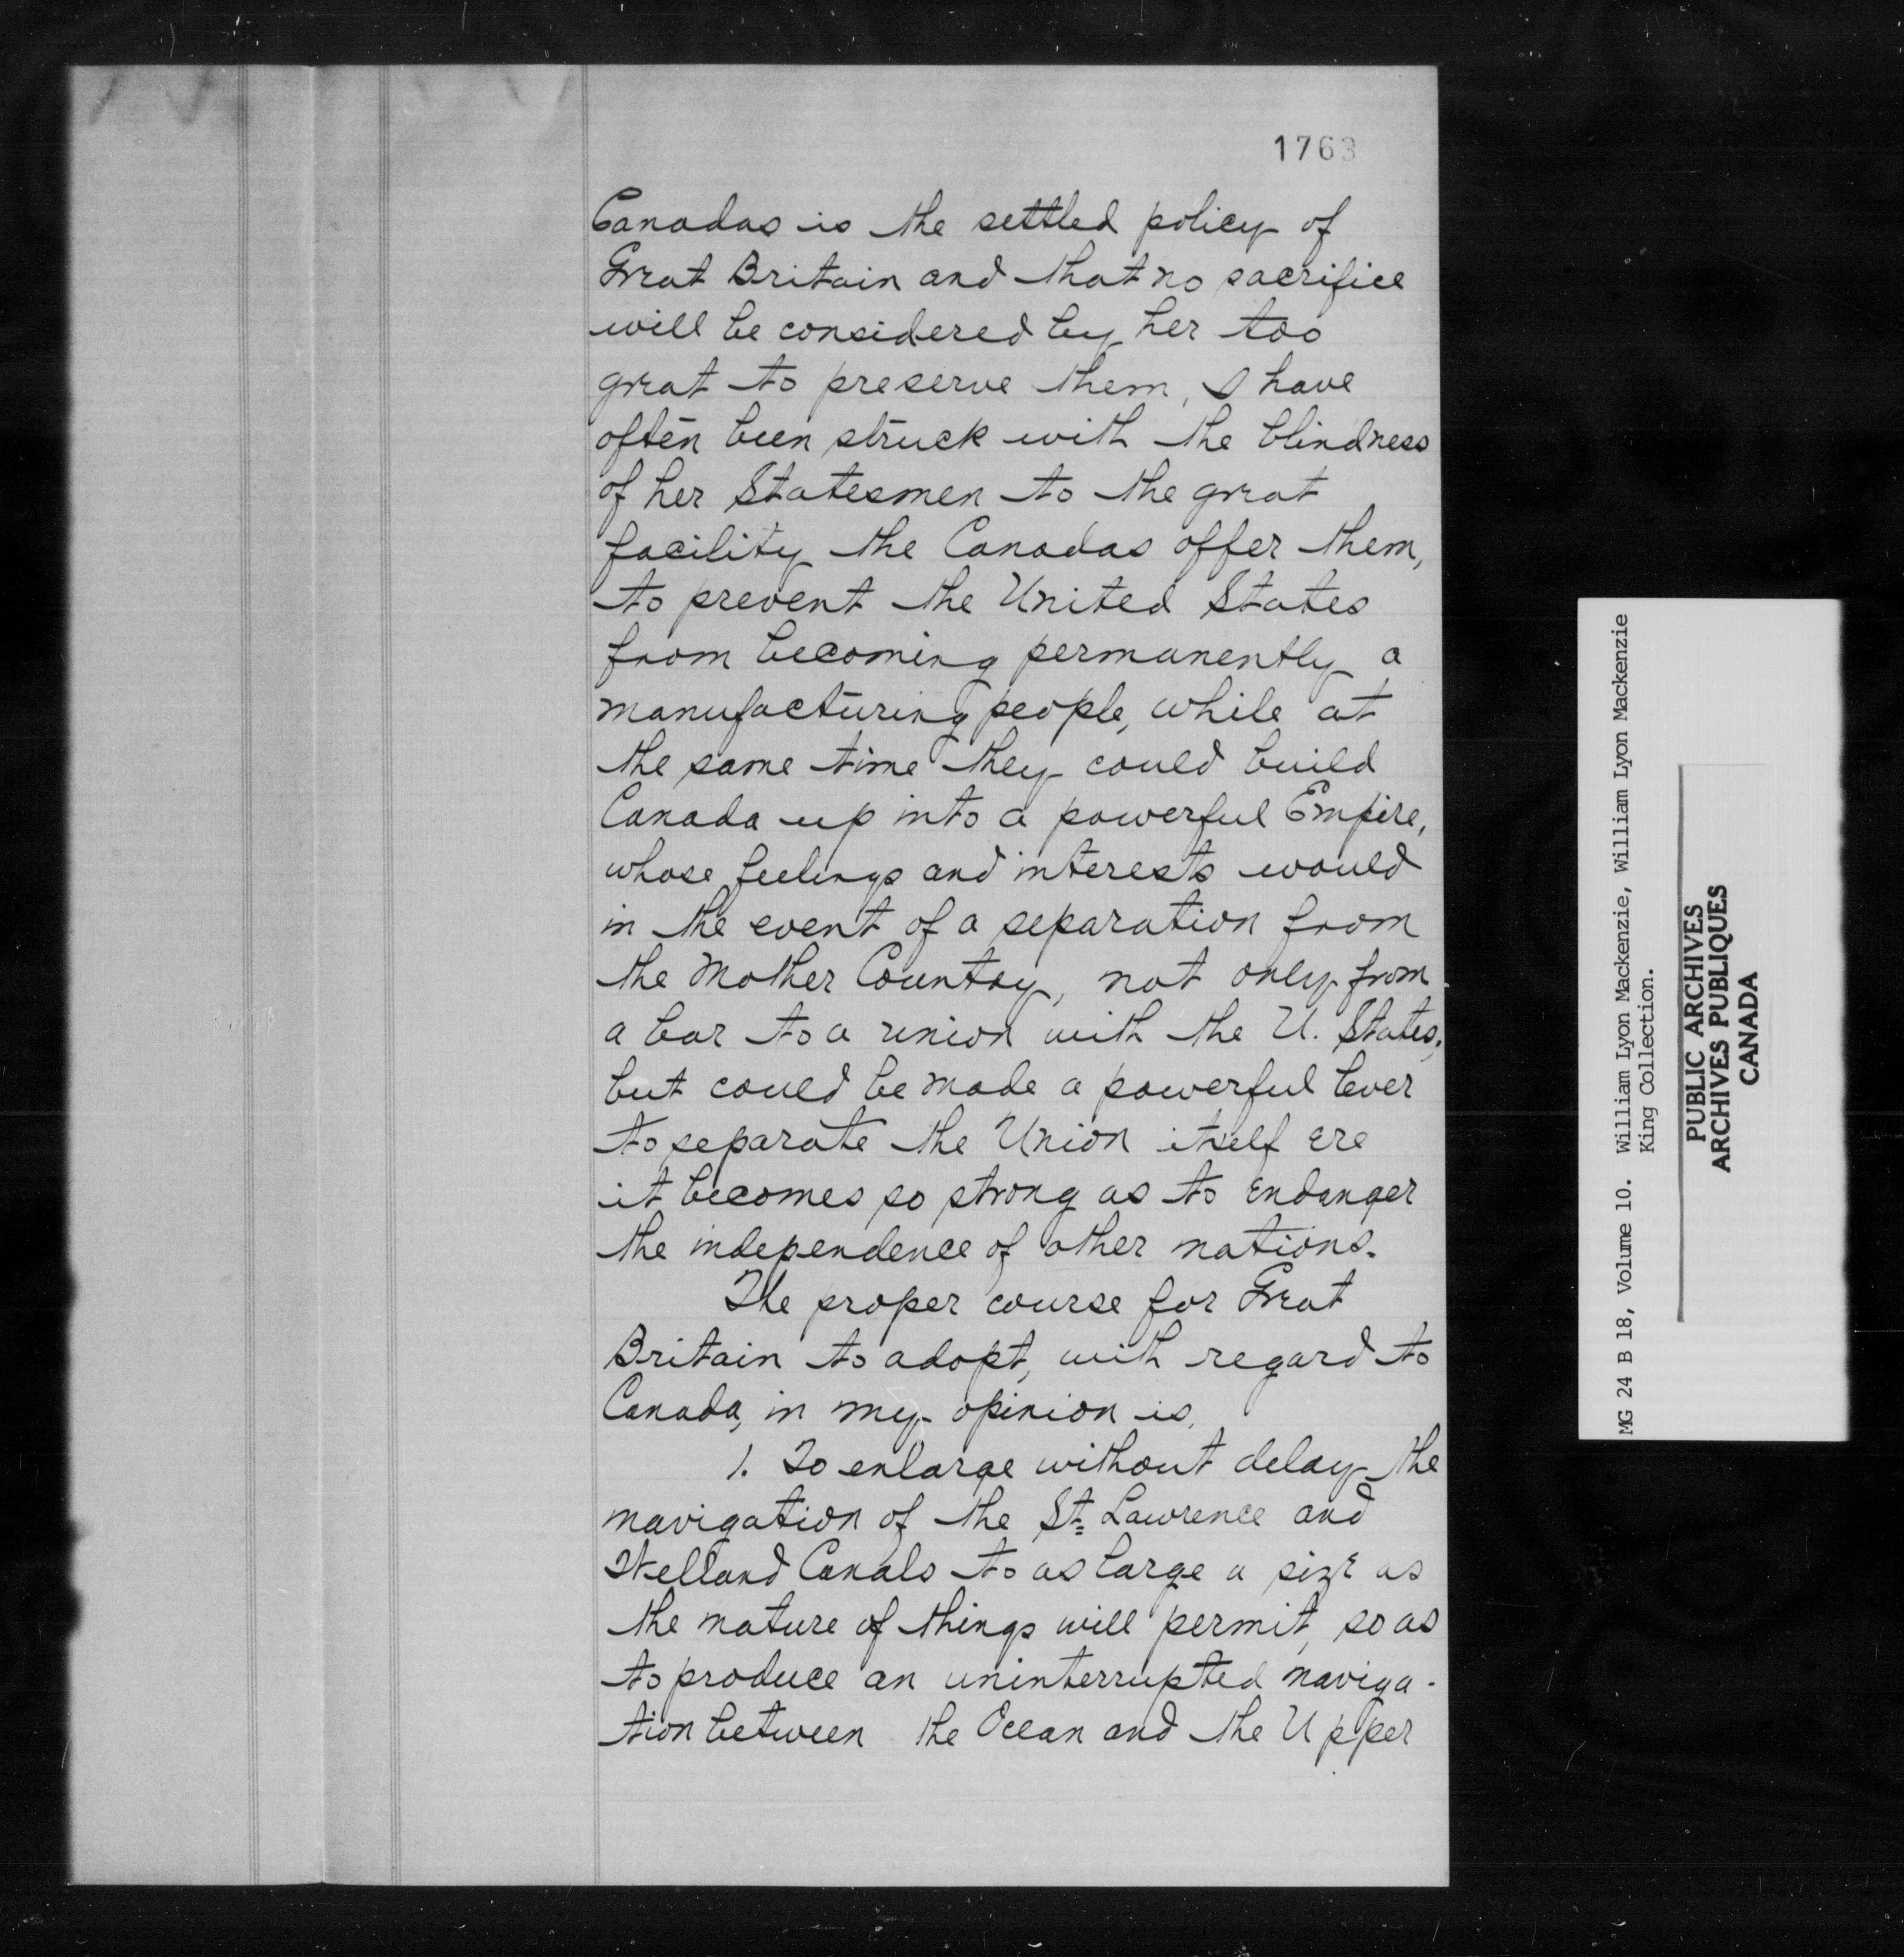 1763
Canadas is the settled policy of
Great Britain and that no sacrifice
will be considered by her too
great to preserve them, I have
often been struck with the blindness
of her Statesmen to the great
facility the Canadas offer them,
to prevent the United States
from becoming permanently a
manufacturing people, while at
the same time they could build
Canada up into a powerful Empire,
whose feelings and interests would
in the event of a separation from
the Mother Country, not only from
a bar to a union with the U. States,
but could be made a powerful lever
to separate the Union itself ere
it becomes so strong as to endanger
the independence of other nations.
The proper course for Great
Britain to adopt, with regard to
Canada, in my opinion is,
1. To enlarge without delay the
navigation of the St. Lawrence and
Welland Canals to as large a size as
the nature of things will permit, so as
to produce an uninterrupted naviga-
tion between the Ocean and the Upper
MG 24 B 18, Volume 10. William Lyon Mackenzie, William Lyon Mackenzie
King Collection.
PUBLIC ARCHIVES
ARCHIVES PUBLIQUES
CANADA